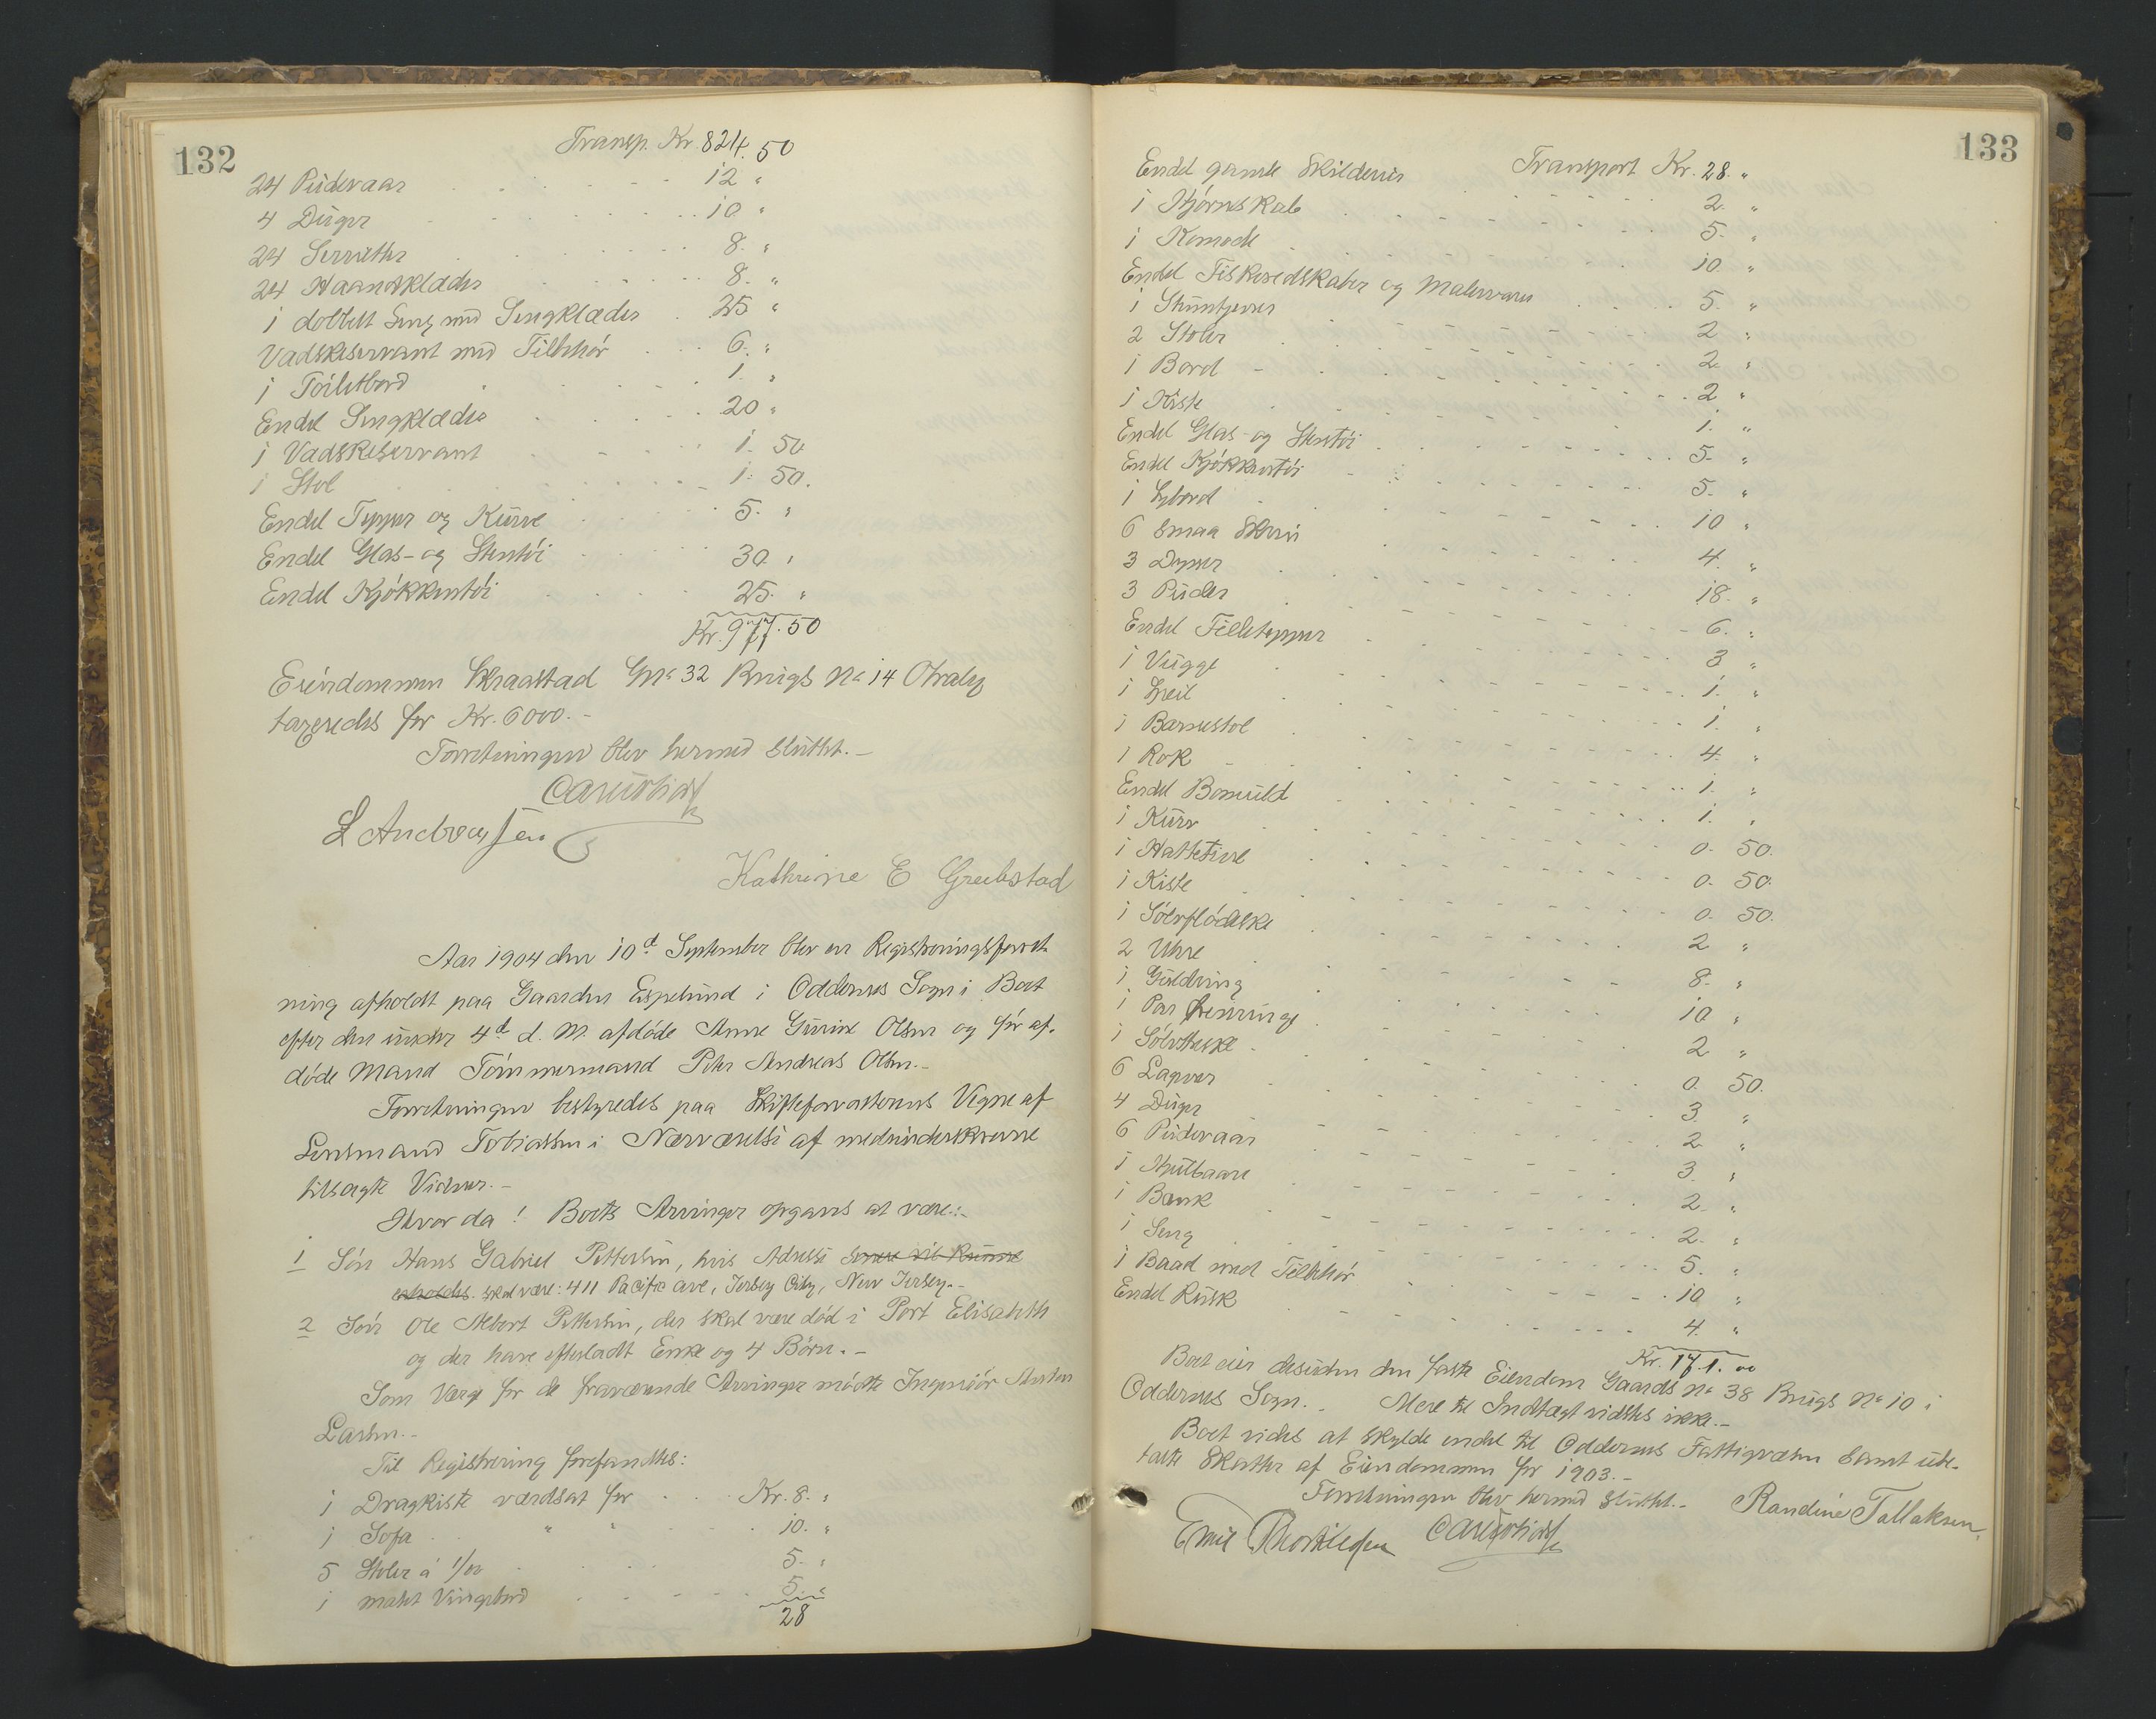 132
Transp. Kr. 824. 50
24 Pudevaar 12 "
4 Duger 10 "
24 Servietter 8. "
24 Haandklæder 8. "
1 dobbelt Seng med Sengklæder 25 "
Vadskeservant med Tilbehør 6. "
1 Toiletbord 1. "
Endel Sengklæder 20 "
1 Vadskeservant 1. 50
1 Stol 1. 50.
Endel Tepper og Kurve 5. "
Endel Glas- og Stentøi 30. "
Endel Kjøkkentøi 25. "
Kr. 977. 50
Eiendommen Skraastad Gno 32 Brugs No 14 Otraly
taxeredes for Kr. 6000.-
Forretningen blev hermed sluttet.-
L Andreassen
Kathrine E Greibstad
Aar 1904 den 10d September blev en Registreringsforret-
ning afholdt paa Gaarden Espelund i Oddernes Sogn i Boet
efter den under 4d d. M. afdøde Anne Gurine Olsen og før af-
døde Mand Tømmermand Peter Andreas Olsen.-
Forretningen bestyredes paa Skifteforvalterens Vegne af
Lensmand Tobiassen i Nærværelse af medunderskrevne
tilsagte Vidner.-
Hvor da! Boets Arvinger opgaves at være:-
1 Søn Hans Gabriel Pettersen, hvis Adresse senere vil kunne
erholdes. skal være: 411 Pacific ave, Jersey City, New Jersey.-
2 Søn Ole Albert Pettersen, der skal være død i Port Elisabeth
og der have efterladt Enke og 4 Børn.-
Som Værge for de fraværende Arvinger mødte Ingeniør Anton
Larsen.-
Til Registrering forefandtes:
1 Dragkiste værdsat for Kr. 8. "
1 Sofa " " 10. "
5 Stoler à 1/00 5. "
1 malet Vingebord 5. "
28
133
Transport Kr. 28. "
Endel gamle Skilderier 2. "
1 Hjørneskab 5. "
1 Komode 10 "
Endel Fiskeredskaber og Malervarer 5. "
1 Skuntjener 2 "
2 Stoler 2. "
1 Bord 2 "
1 Kiste 1. "
Endel Glas- og Stentøi 5. "
Endel Kjøkkentøi 5. "
1 Sybord 10 "
6 smaa Skrin 4. "
3 Dyner 18. "
3 Puder 6. "
Endel Filletepper 3 "
1 Vugge 1. "
1 Speil 1. "
1 Barnestol 4. "
1 Rok 1. "
Endel Bomuld 1. "
1 Kurv 0. 50.
1 Hattetine 0. 50.
1 Kiste 0. 50.
1 Sølvflødeske 2 "
2 Uhre 8. "
1 Guldring 10 "
1 Par Ørenringe 2 "
1 Sølvtheske 0. 50.
6 Lagner 3. "
4 Duger 2. "
6 Pudevaar 3. "
1 Hjulbaare 2. "
1 Bænk 2. "
1 Seng 5. "
1 Baad med Tilbehør 10 "
Endel Rusk 4. "
Kr. 171. 00
Boet eier desuden den faste Eiendom Gaards No 38 Brugs No 10 i
Oddernes Sogn.- Mere til Indtægt vidstes ikke.-
Boet vides at skylde endel til Oddernes Fattigvæsen samt ube-
talte Skatter af Eiendommen for 1903.-
Forretningen blev hermed sluttet.- Randine Tallaksen.
Emil